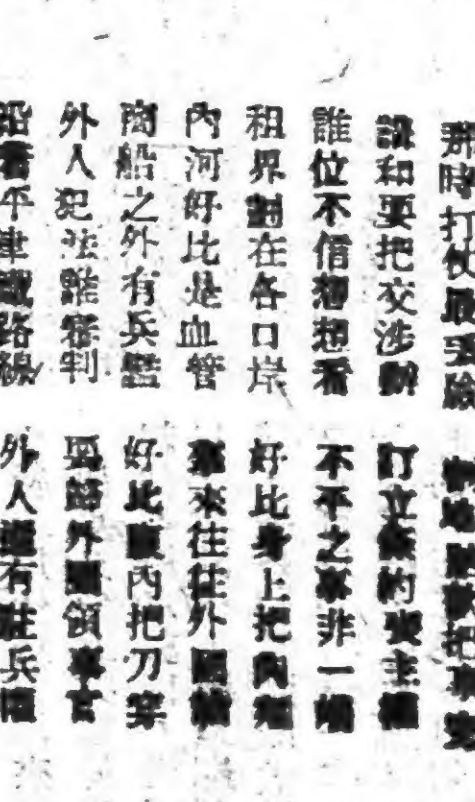 那時打仗 把事
講和要把交涉辦 訂立條約喪主權
誰位不信想想看 不平之事非一端
租界劃在各口岸 好比身上把肉
內河好比是血管 來往往外國
商船之外有兵艦 好比腹內把刀穿
外人犯法誰審判 要歸外國領事官
沿着平津鐵路線 外人還有駐兵權